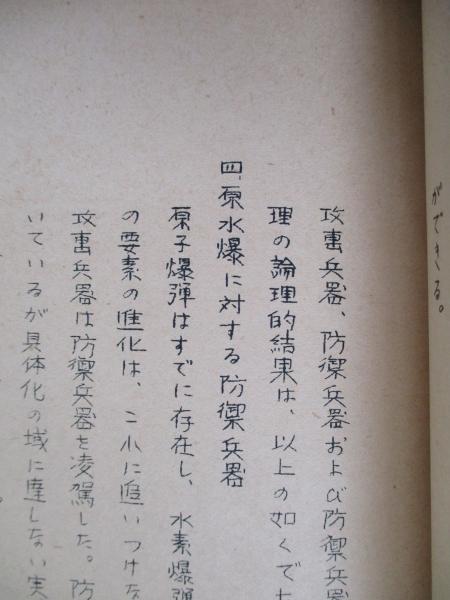 ができる。
攻撃兵器、防禦兵器および防禦兵器
理の論理的結果は、以上の如くで
四、原水爆に対する防禦兵器
原子爆弾はすでに存在し、水素爆弾
の要素の進化は、これに追いつけな
攻撃兵器は防禦兵器を凌駕した。防
いているが具体化の域に達しない実